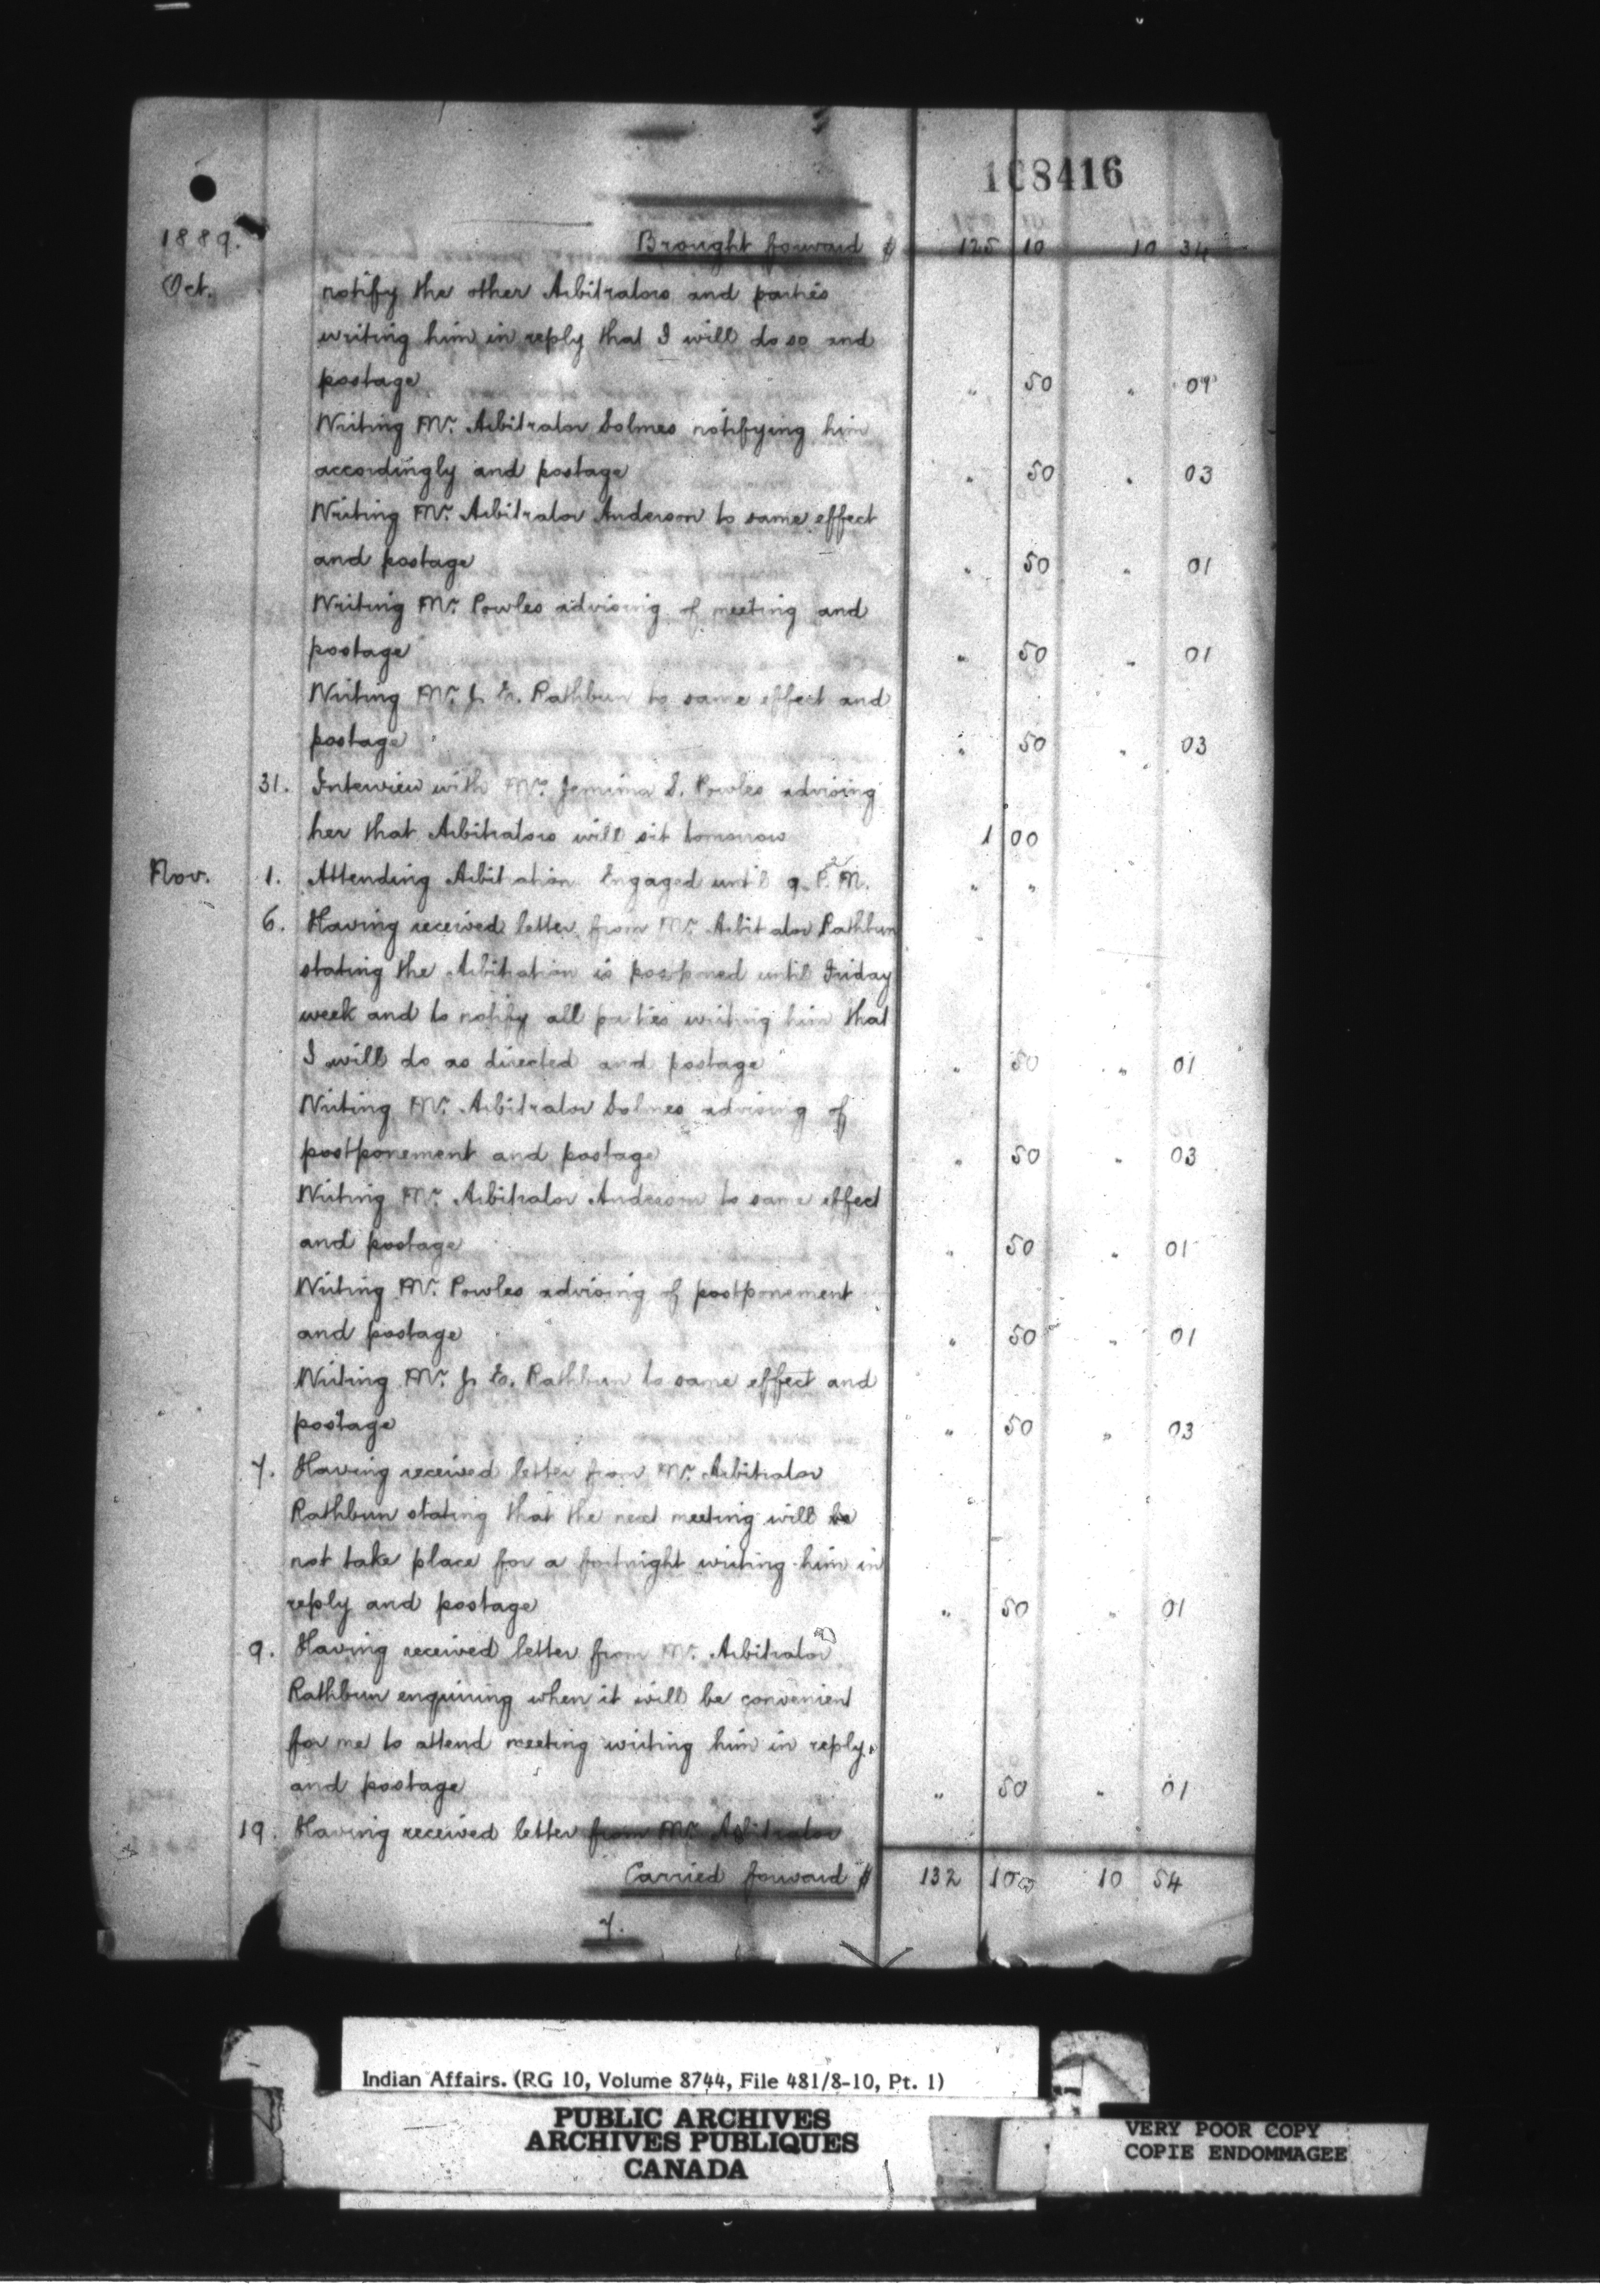 108416
1889. Brought forward $ 125 10 10 34
Oct. notify the other Arbitrators and parties
writing him in reply that I will do so and
postage " 50 "
Writing Mr. Arbitrator Solmes notifying him
accordingly and postage " 50 " 03
Writing Mr. Arbitrator Anderson to same effect
and postage " 50 " 01
Writing Mr. Powles advising of meeting and
postage " 50 " 01
Writing Mr. J. E. Rathbun to same effect and
postage " 50 " 03
31. Interview with Jemima S. Powles advising
her that Arbitrators will sit tomorrow 1 00
Nov. 1. Attending Arbitration. Engaged until 9. P.M. " "
6. Having received letter from Mr. Arbitrator Rathbun
stating the Arbitration is postponed until Friday
week and to notify all parties writing him that
I will do as directed and postage " 50 " 01
Writing Mr. Arbitrator Solmes advising of
postponement and postage " 50 " 03
Writing Mr. Arbitrator Anderson to same effect
and postage " 50 " 01
Writing Mr. Powles advising of postponement
and postage " 50 " 01
Writing Mr. J. E. Rathbun to same effect and
postage " 50 " 03
7. Having received letter from Mr. Arbitrator
Rathbun stating that the next meeting will be
not take place for a fortnight writing him in
reply and postage " 50 " 01
9. Having received letter from Mr. Arbitrator
Rathbun enquiring when it will be convenient
for me to attend meeting writing him in reply.
and postage " 50 " 01
19. Having received letter from Mr. Arbitrator
Carried forward $ 132 10 10 54
7.
Indian Affairs. (RG 10, Volume 8744, File 481/8-10, Pt. 1)
PUBLIC ARCHIVES
ARCHIVES PUBLIQUES
CANADA
VERY POOR COPY
COPIE ENDOMMAGEE